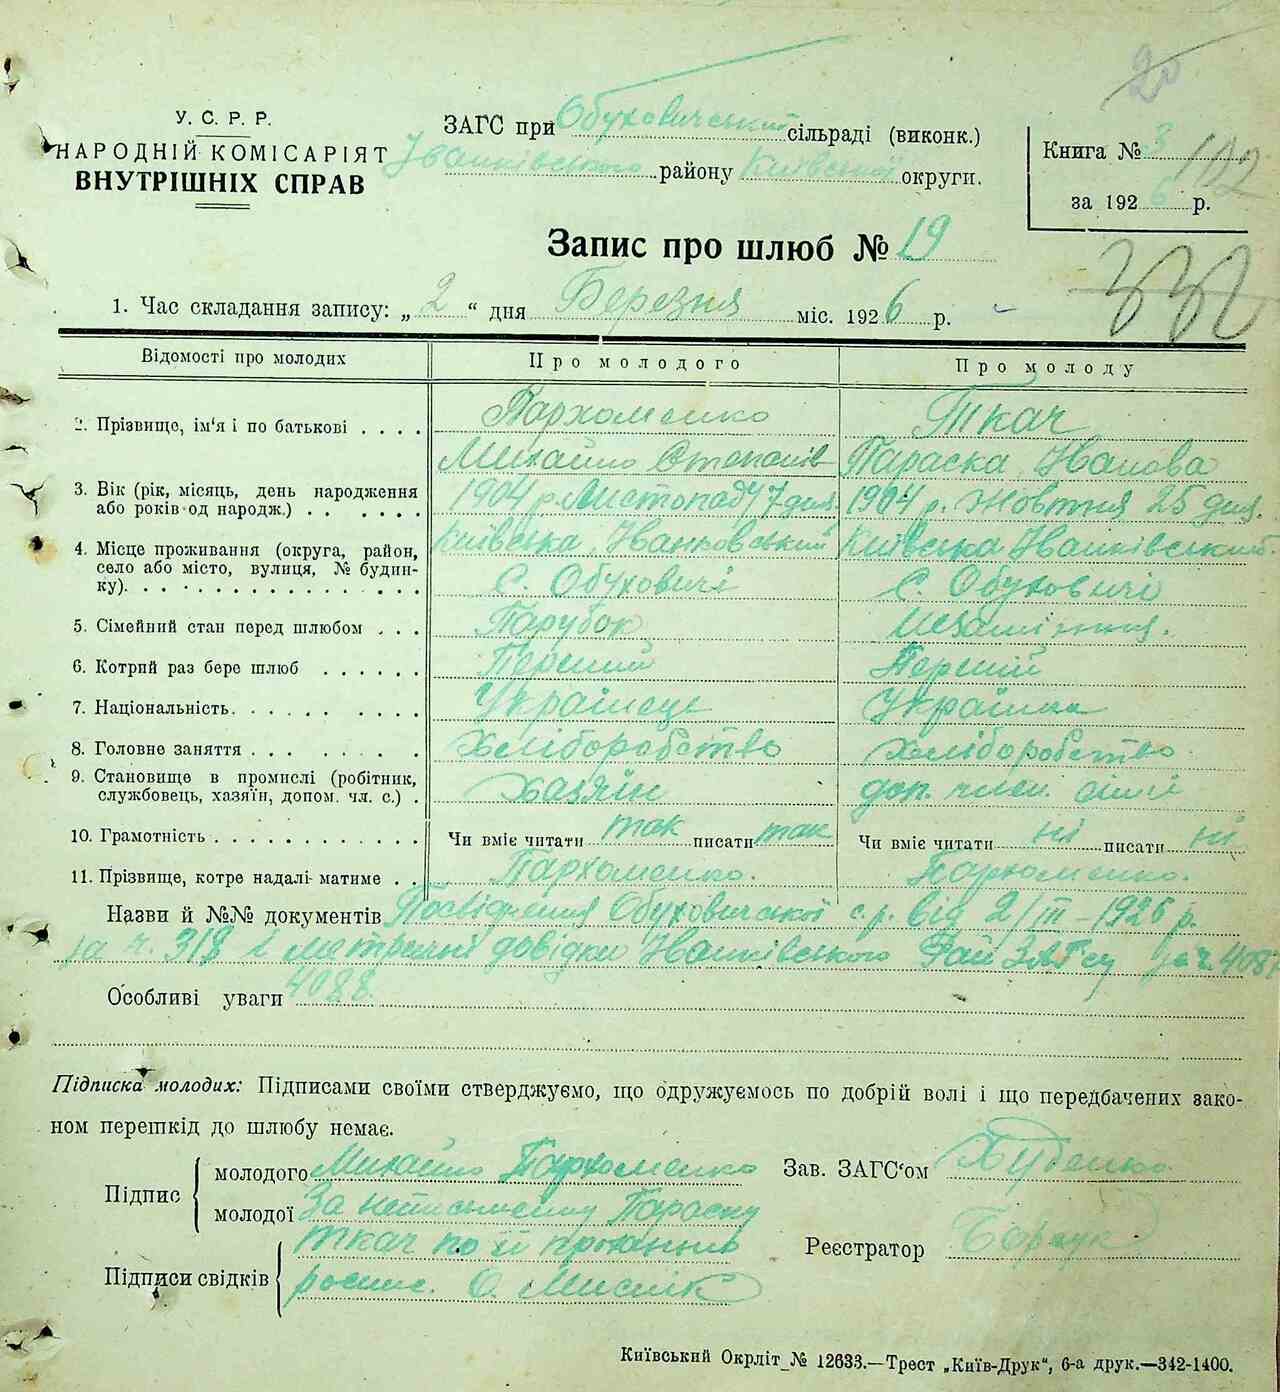 20
У. С. Р. Р.
НАРОДНІЙ КОМІСАРІЯТ
ВНУТРІШНІХ СПРАВ
ЗАГС при Обуховичський сільраді (виконк.)
Іванківського району Київської округи.
Книга № 3
за 1926 р.
112
Запис про шлюб № 19
332
1. Час складання запису: „2“ дня Березня міс. 1926 р.
Відомості про молодих Про молодого Про молоду
2. Прізвище, ім'я і по батькові . . . . Пархоменко Ткач
Михайло Степанів Параска Іванова
3. Вік (рік, місяць, день народження або років од народж.) . . . . . . 1904 р. Листопаду 7 дня 1904 р. Жовтня 25 дня.
4. Місце проживання (округа, район, село або місто, вулиця, № будинку). Київська, Іванковський Київська Іванківський
с. Обуховичі с. Обуховичі
5. Сімейний стан перед шлюбом . . . Парубок Незаміжня.
6. Котрий раз бере шлюб . . . . . . Перший Перший
7. Національність. . . . . . . . . Українець Українка
8. Головне заняття . . . . . . . . Хліборобство Хліборобство
9. Становище в промислі (робітник, службовець, хазяїн, допом. чл. с.) . Хазяїн доп. член сімії
10. Грамотність . . . . . . . . . . . . Чи вміє читати так писати так Чи вміє читати ні писати ні
11. Прізвище, котре надалі матиме . . Пархоменко. Пархоменко.
Назви й №№ документів Посвідчення Обуховичської с.р. від 2/III-1926 р.
за ч. 318 і метричні довідки Іванківського Рай ЗАГСу за ч. 4087
Особливі уваги 4088.
Підписка молодих: Підписами своїми стверджуємо, що одружуємось по добрій волі і що передбачених зако-
ном перешкід до шлюбу немає.
Підпис молодого Михайло Пархоменко Зав. ЗАГС'ом Худенко
молодої За неписьменну Параску
Ткач по її проханню Реєстратор
Підписи свідків роспис. О. Мислік
Київський Окрліт № 12633.—Трест „Київ-Друк“, 6-а друк.—342-1400.